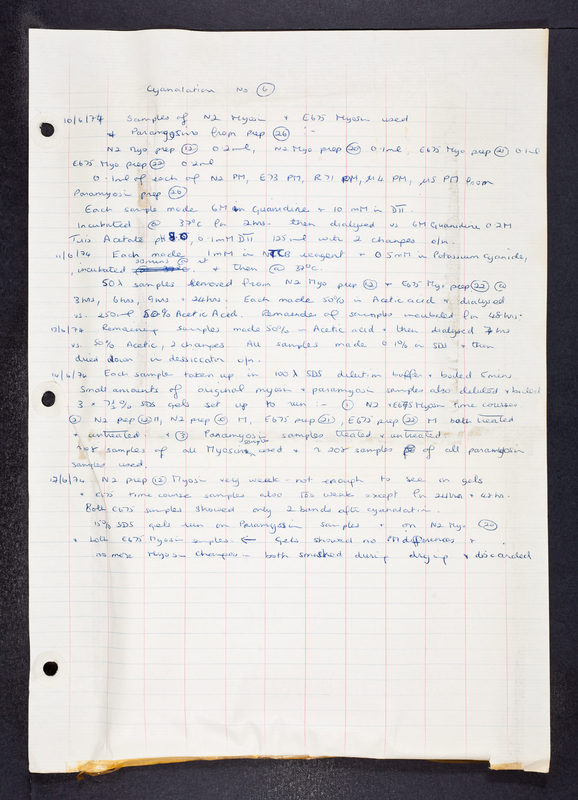 Cyanalation No 6
10/6/74 Samples of N2 Myosin + E675 Myosin used
+ Paramyosins from prep 26 :-
N2 Myo prep 12 0.2ml, N2 Myo prep 20 0.1ml, E675 Myo prep 21 0.1ml
E675 Myo prep 22 0.2ml
0.1ml of each of N2 PM, E73 PM, R71 PM, μ4 PM, μ5 PM from
Paramyosin prep 26
Each sample made 6M in Guanidine + 10 mM in DTT.
Incubated @ 37°C for 2hrs. then dialysed vs 6M Guanidine 0.2M
Tris Acetate pH 8.0, 0.1mM DTT 125ml with 2 changes o/n.
11/6/74 Each made 1mM in NTCB reagent + 0.5mM in Potassium Cyanide,
incubated 30mins @ rt + then @ 37°C.
50λ samples removed from N2 Myo prep 12 + E675 Myo prep 22 @
3hrs, 6hrs, 9hrs + 24hrs. Each made 50% in Acetic acid + dialysed
vs. 250ml 50% Acetic Acid. Remainder of samples incubated for 48hrs.
13/6/74 Remaining samples made 50% in Acetic acid + then dialysed 7hrs
vs. 50% Acetic, 2 changes. All samples made 0.1% in SDS + then
dried down in dessicator o/n.
14/6/74 Each sample taken up in 100λ SDS dilution buffer + boiled 5mins
Small amounts of original myosin + paramyosin samples also diluted + boiled
3 × 7½% SDS gels set up to run :- 1 N2 + E675 Myosin time courses
2 N2 prep 12 M, N2 prep M, E675 prep 21, E675 prep 22 M both treated
+ untreated. + 3 Paramyosin samples treated + untreated.
samples of all Myosins used + ~ 20λ samples of all paramyosin
samples used.
17/6/74 N2 prep 12 Myosin very weak - not enough to see on gels
+ E675 time course samples also too weak except for 24hrs + 48hrs.
Both E675 samples showed only 2 bands after cyanalation.
15% SDS gels run on Paramyosin samples + on N2 Myo 20
+ both E675 Myosin samples. ← Gels showed no PM differences +
no more Myosin changes - both smashed during drying + discarded